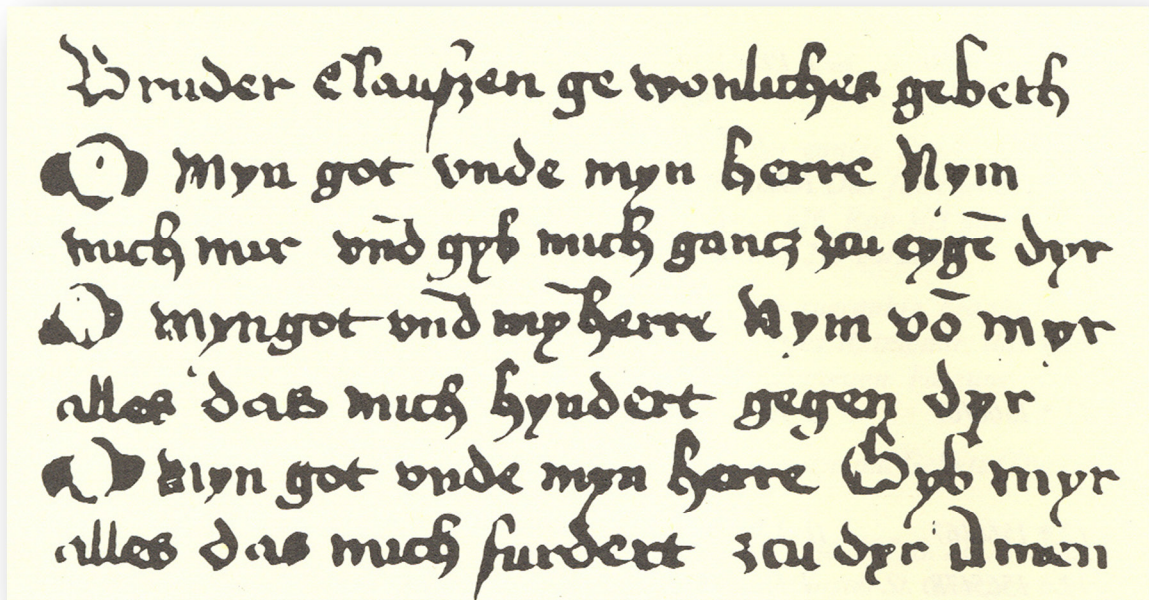 Bruder Claußen ge wonliches gebeth
O Myn got vnde myn herre Nym
mich mir vnd̄ gyb mich gantz zcu eygē dyr
O myn got vnd̄ mȳ herre Nym vō myr
alles das mich hyndert gegen dyr
O Myn got vnde myn herre Gyb myr
alles das mich furdert zcu dyr Amen